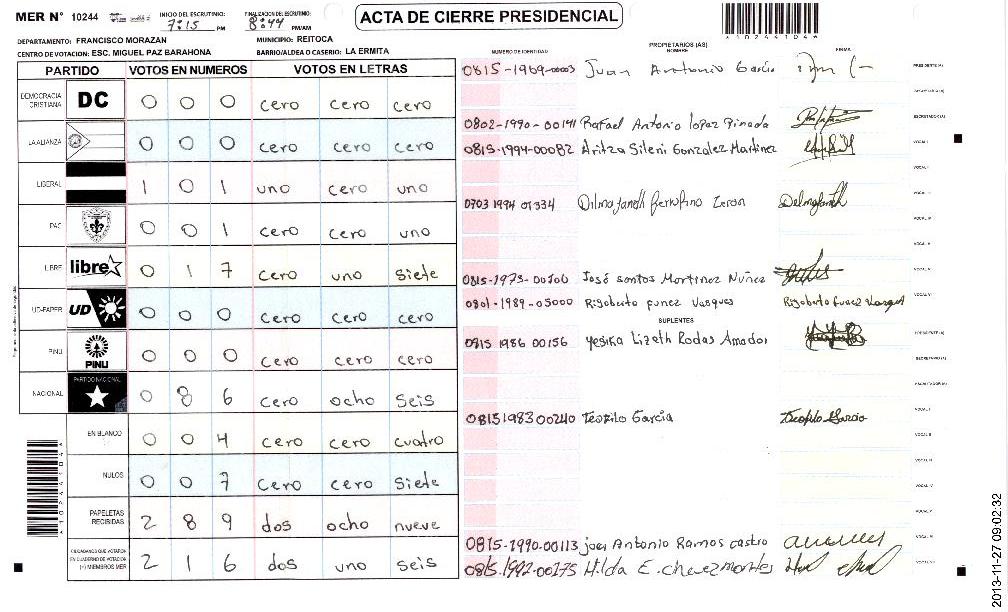 MER N° 10244 INICIO DEL ESCRUTINIO: 7:15 PM FINALIZACION DEL ESCRUTINIO: 8:44 PM/AM
ACTA DE CIERRE PRESIDENCIAL
DEPARTAMENTO: FRANCISCO MORAZAN MUNICIPIO: REITOCA
CENTRO DE VOTACION: ESC. MIGUEL PAZ BARAHONA BARRIO/ALDEA O CASERIO: LA ERMITA
PARTIDO VOTOS EN NUMEROS VOTOS EN LETRAS
DEMOCRACIA CRISTIANA DC 0 0 0 cero cero cero
LA ALIANZA 0 0 0 cero cero cero
LIBERAL 1 0 1 uno cero uno
PAC 0 0 1 cero cero uno
LIBRE libre 0 1 7 cero uno siete
UD-FAPER UD 0 0 0 cero cero cero
PINU PINU 0 0 0 cero cero cero
NACIONAL PARTIDO NACIONAL 0 8 6 cero ocho seis
EN BLANCO 0 0 4 cero cero cuatro
NULOS 0 0 7 cero cero siete
PAPELETAS RECIBIDAS 2 8 9 dos ocho nueve
CIUDADANOS QUE VOTARON EN CUADERNO DE VOTACION (+) MIEMBROS MER 2 1 6 dos uno seis
NUMERO DE IDENTIDAD PROPIETARIOS (AS) NOMBRE FIRMA
0615-1969-00003 Juan Antonio Garcia PRESIDENTE (A)
0802-1990-00141 Rafael Antonio lopez Pineda SECRETARIO (A)
0815-1994-00082 Aritza Sileni Gonzalez Martinez VOCAL I
0703 1994 01334 VOCAL III
0815-1973-00106 José santos Martinez Nuñez VOCAL V
0801-1989-05000 Rigoberto funez Vasques Rigoberto Funez Vasquez VOCAL VI
SUPLENTES
0815 1986 00156 yesika Lizeth Rodas Amador PRESIDENTE (A)
SECRETARIO (A)
0815198300240 Teofilo Garcia Teofilo Garcia VOCAL I
VOCAL II
VOCAL III
VOCAL IV
VOCAL V
0815-1990-00113 joel Antonio Ramos castro
0815-1992-00175 Hilda E. chavez montes
2013-11-27 09:02:32